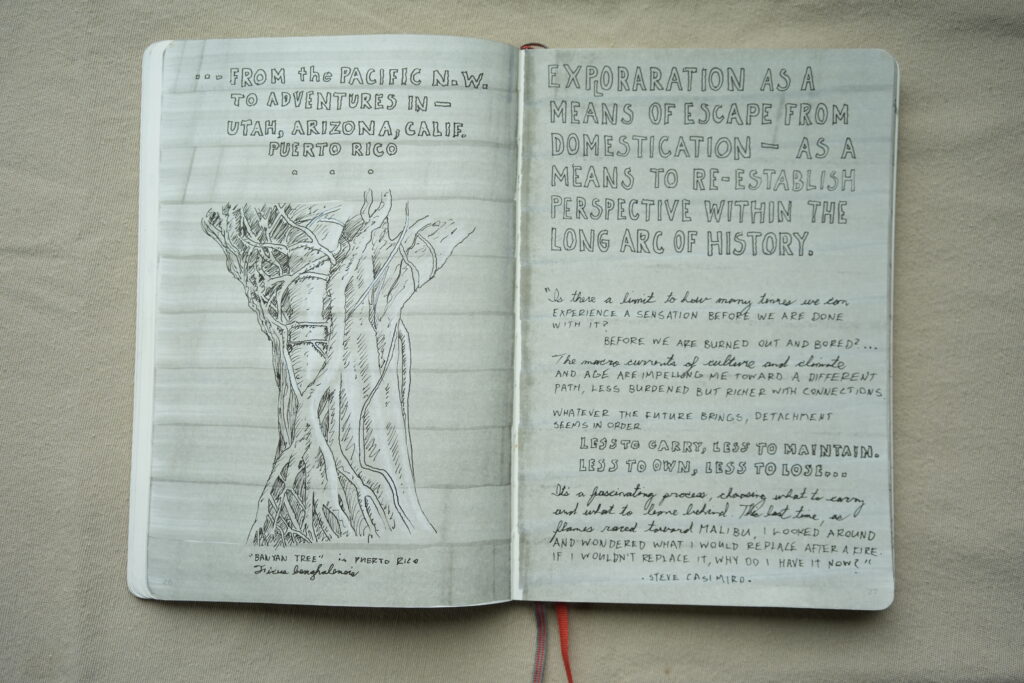 ... FROM the PACIFIC N.W.
TO ADVENTURES IN —
UTAH, ARIZONA, CALIF.
PUERTO RICO
. . .
"BANYAN TREE" in PUERTO RICO
Ficus benghalensis
EXPLORARATION AS A
MEANS OF ESCAPE FROM
DOMESTICATION — AS A
MEANS TO RE-ESTABLISH
PERSPECTIVE WITHIN THE
LONG ARC OF HISTORY.
"Is there a limit to how many times we can
EXPERIENCE A SENSATION BEFORE WE ARE DONE
WITH IT?
BEFORE WE ARE BURNED OUT AND BORED?...
The macro currents of culture and climate
AND AGE ARE IMPELLING ME TOWARD A DIFFERENT
PATH, LESS BURDENED BUT RICHER WITH CONNECTIONS.
WHATEVER THE FUTURE BRINGS, DETACHMENT
SEEMS IN ORDER
LESS TO CARRY, LESS TO MAINTAIN.
LESS TO OWN, LESS TO LOSE...
It's a fascinating process, choosing what to carry
and what to leave behind. The last time, as
flames raced toward MALIBU, I LOOKED AROUND
AND WONDERED WHAT I WOULD REPLACE AFTER A FIRE.
IF I WOULDN'T REPLACE IT, WHY DO I HAVE IT NOW?"
. STEVE CASIMIRO.